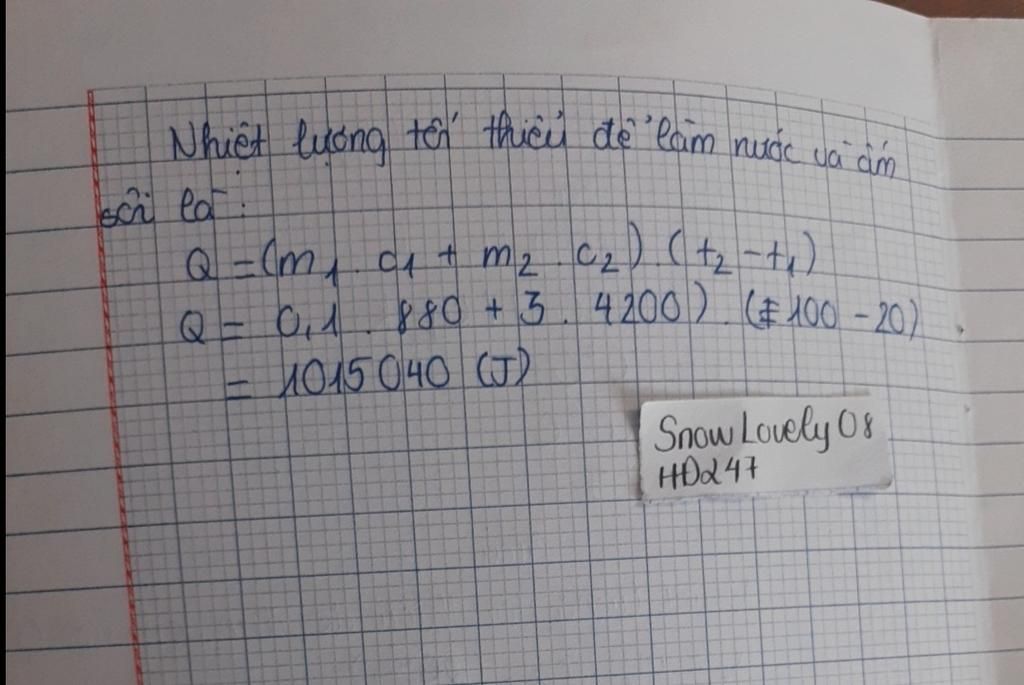 Nhiệt lượng tối thiểu để làm nước và ấm
sôi là:
Q = (m₁. c₁ + m₂. c₂). (t₂ - t₁)
Q = 0,1. 880 + 3. 4200). (100 - 20)
= 1015040 (J)
SnowLovely08
HD247